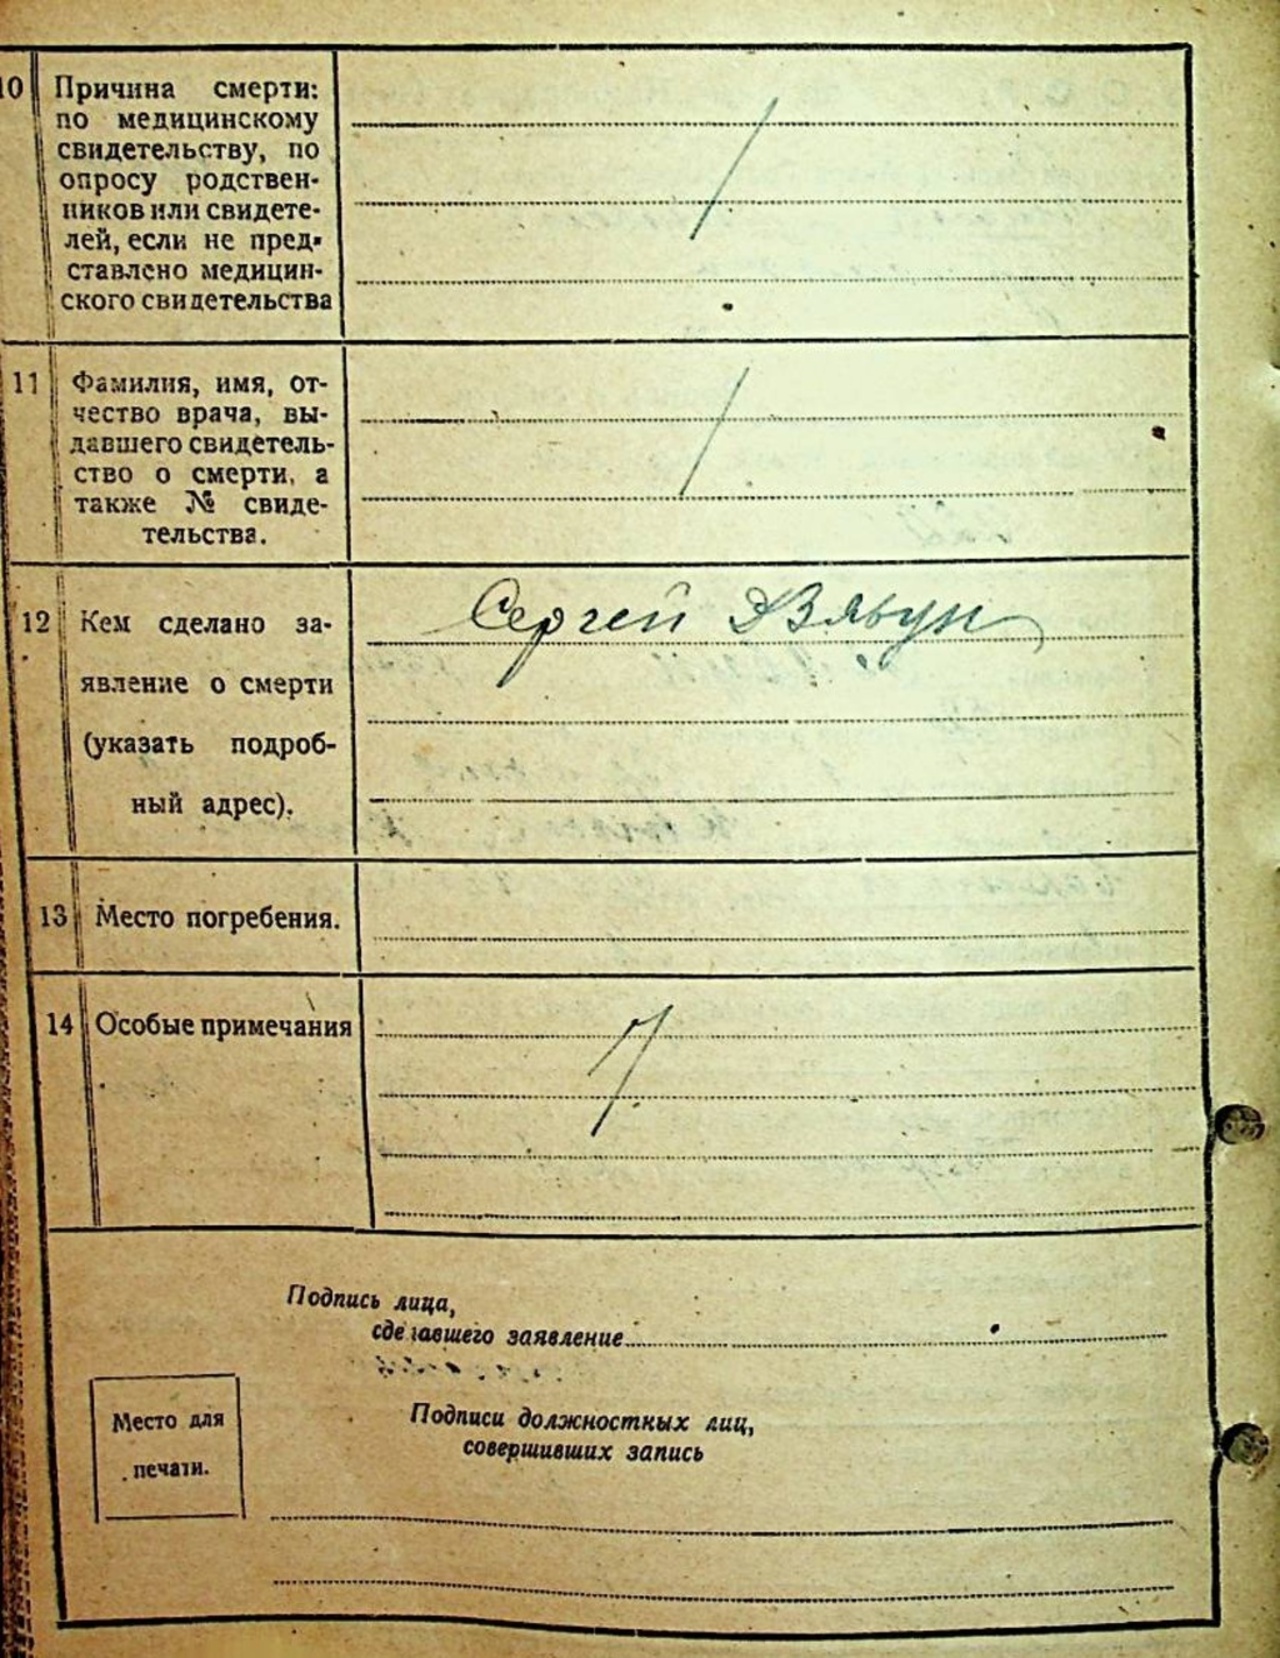 10 Причина смерти:
по медицинскому
свидетельству, по
опросу родствен-
ников или свидете-
лей, если не пред-
ставлено медицин-
ского свидетельства
11 Фамилия, имя, от-
чество врача, вы-
давшего свидетель-
ство о смерти, а
также № свиде-
тельства.
12 Кем сделано за-
явление о смерти
(указать подроб-
ный адрес).
Сергей
13 Место погребения.
14 Особые примечания
Подпись лица,
сделавшего заявление
Место для
печати.
Подписи должностных лиц,
совершивших запись